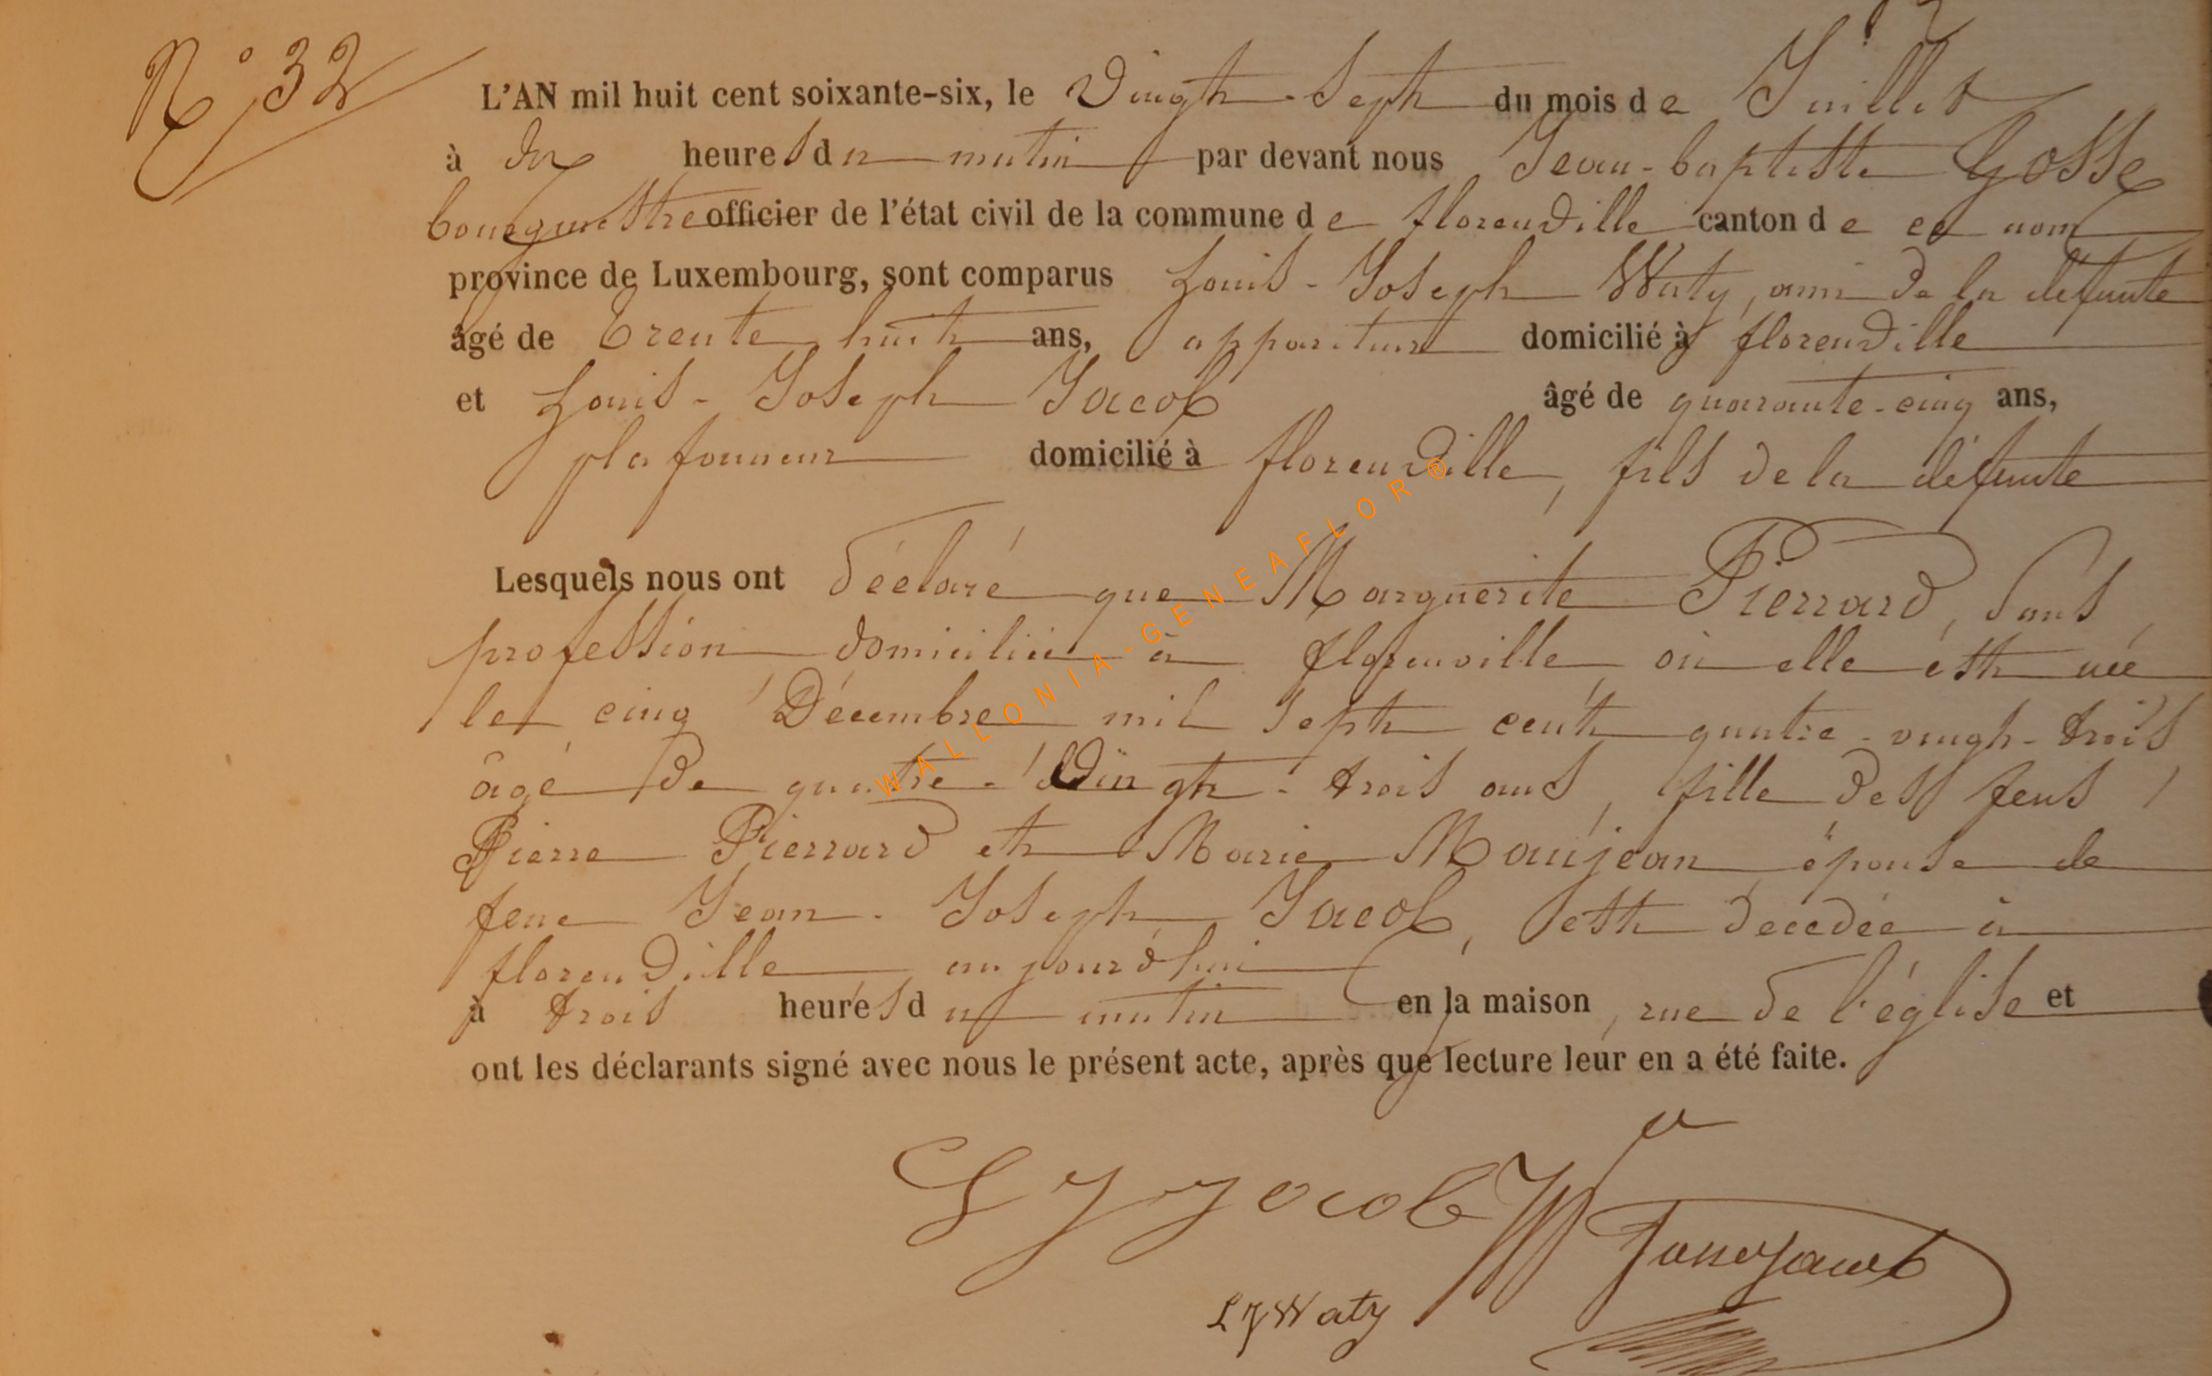 N° 32
L'AN mil huit cent soixante-six, le Vingt-Sept du mois de Juillet
à dix heures du matin par devant nous Jean-baptiste Gosse
bourgmestre officier de l'état civil de la commune de florenville canton de ce nom
province de Luxembourg, sont comparus Louis-Joseph Waty, ami de la défunte
âgé de Trente huit ans, appariteur domicilié à florenville
et Louis-Joseph Jacob âgé de quarante-cinq ans,
plafonneur domicilié à florenville, fils de la défunte
Lesquels nous ont déclaré que Marguerite Pierrard, sans
profession domiciliée à florenville où elle est née
le cinq Décembre mil sept cent quatre-vingt-trois
âgé de quatre-Vingt-trois ans, fille des feus
Pierre Pierrard et Marie Maujean épouse de
feue Jean-Joseph Jacob, est décédée à
florenville aujourd'hui
à trois heures du matin en la maison, rue de l'église et
ont les déclarants signé avec nous le présent acte, après que lecture leur en a été faite.
L J Jacob
L J Waty
WALLONIA-GENEAFLOR©